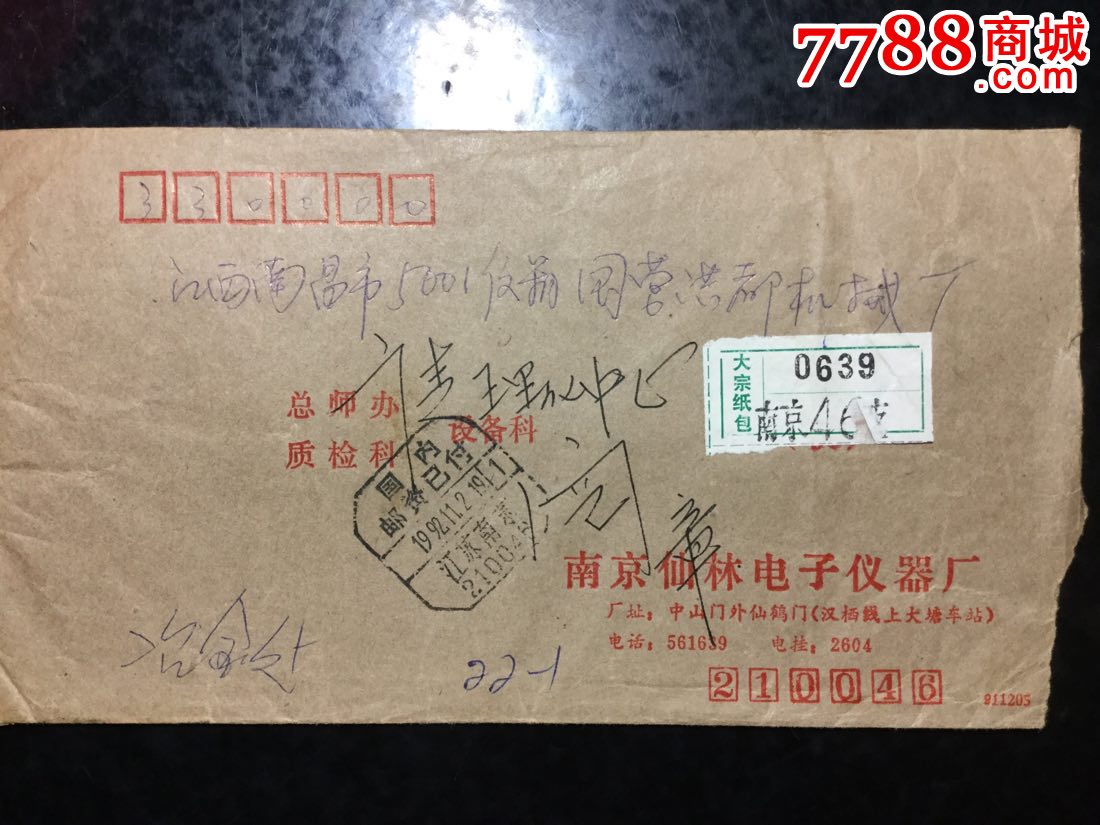 7788商城
.com
330000
江西南昌市5001仪箱国营洪都机械厂
大宗纸包
0639
南京46支
总师办
质检科
设备科
理
中心
国内
邮资已付
1992.11.2 19
江苏南京
210046
章
南京仙林电子仪器厂
厂址：中山门外仙鹤门(汉栖线上大塘车站)
电话：561639 电挂：2604
冶金处
22-1
210046
911205